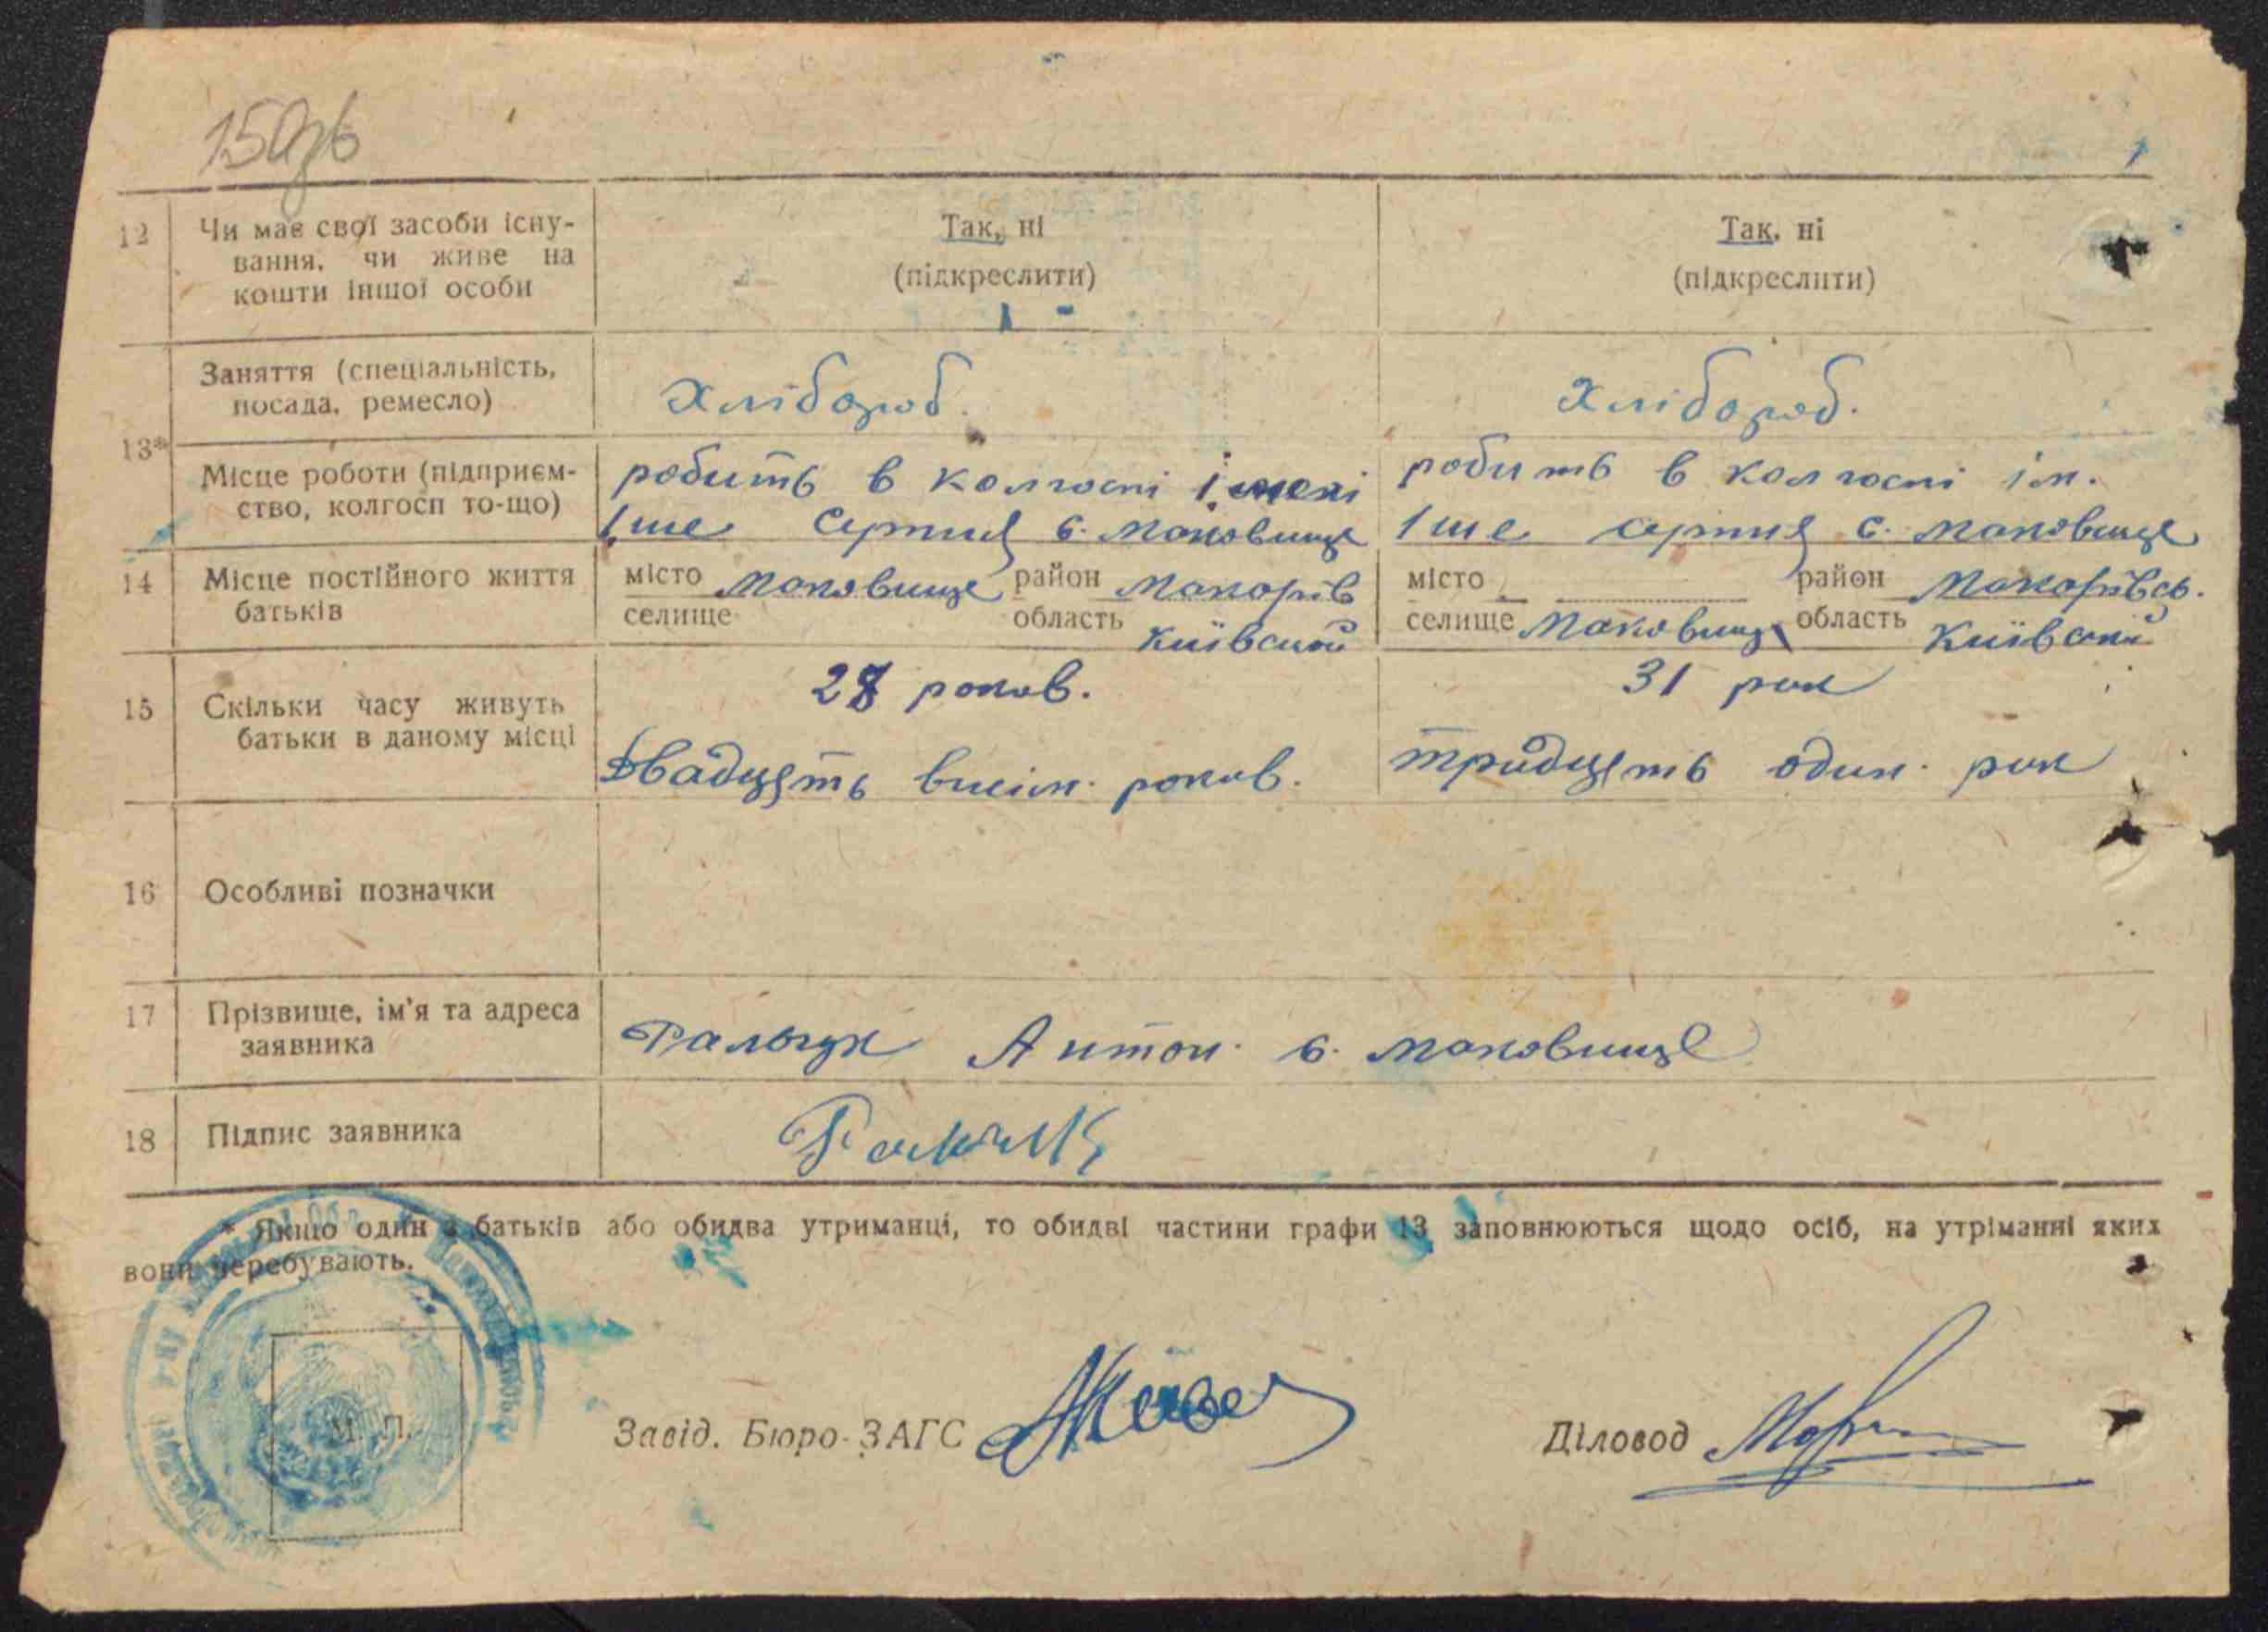 150зв
1
12 Чи має свої засоби існу- Так, ні Так, ні
вання, чи живе на (підкреслити) (підкреслити)
кошти іншої особи
Заняття (спеціальність, Хлібороб. Хлібороб.
посада, ремесло)
13*
Місце роботи (підприєм- робить в колгоспі імені робить в колгоспі ім.
ство, колгосп то-що) 1ше серпня с. Маковище 1ше серпня с. Маковище
14 Місце постійного життя місто Маковище район Макарів місто район Макарівсь.
батьків селище область Київської селище Маковище область Київської
15 Скільки часу живуть 28 років. 31 рік
батьки в даному місці Двадцять вісім років. тридцять один рік
16 Особливі позначки
17 Прізвище, ім'я та адреса Гальчук Антон с. Маковище
заявника
18 Підпис заявника Гальчук
* Якщо один з батьків або обидва утриманці, то обидві частини графи 13 заповнюються щодо осіб, на утріманні яких
вони перебувають.
М. П.
Завід. Бюро-ЗАГС Діловод